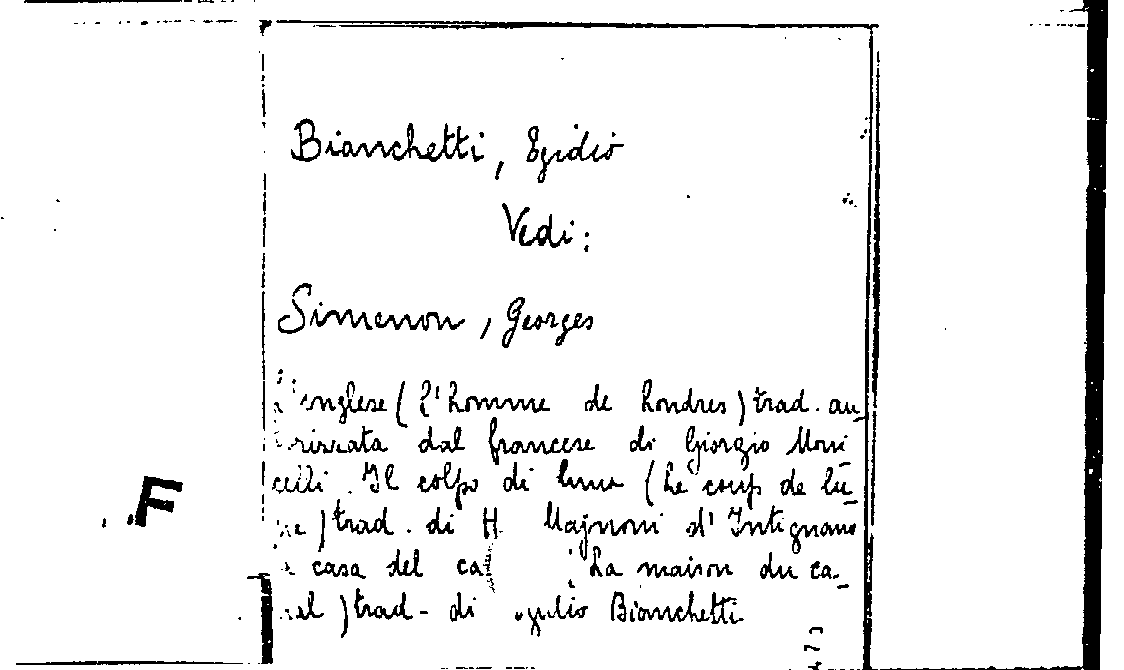 Bianchetti, Egidio
Vedi:
Simenon, Georges
L'inglese (L'homme de Londres) trad. au_
rizzata dal francese di Giorgio Moni
celli. Il colpo di luna (Le coup de lu_
ne) trad. di H Magnoni d'Intignano
casa del ca (La maison du ca_
nal) trad- di Bianchetti
F